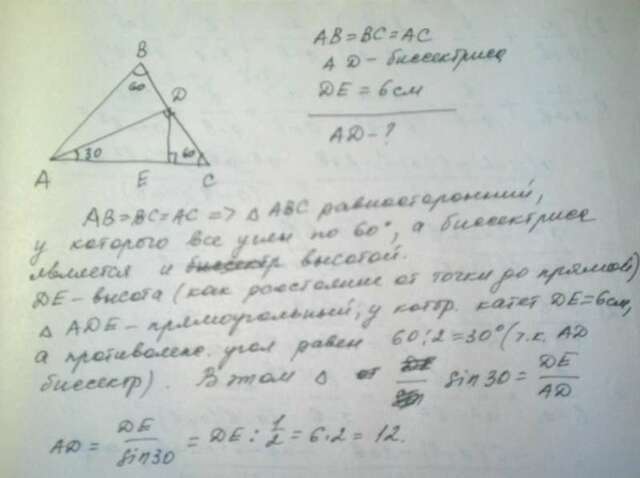 AB=BC=AC
AD - биссектриса
DE = 6 см
AD - ?
B
60
D
30
60
A
E
C
AB=BC=AC => △ ABC равносторонний,
у которого все углы по 60°, а биссектриса
является и высотой.
DE - высота (как расстояние от точки до прямой)
△ ADE - прямоугольный, у котор. катет DE=6см,
а противолеж. угол равен 60:2=30° (т.к. AD
биссектр). В этом △ sin 30 = DE/AD
AD = DE/sin30 = DE : 1/2 = 6·2 = 12.